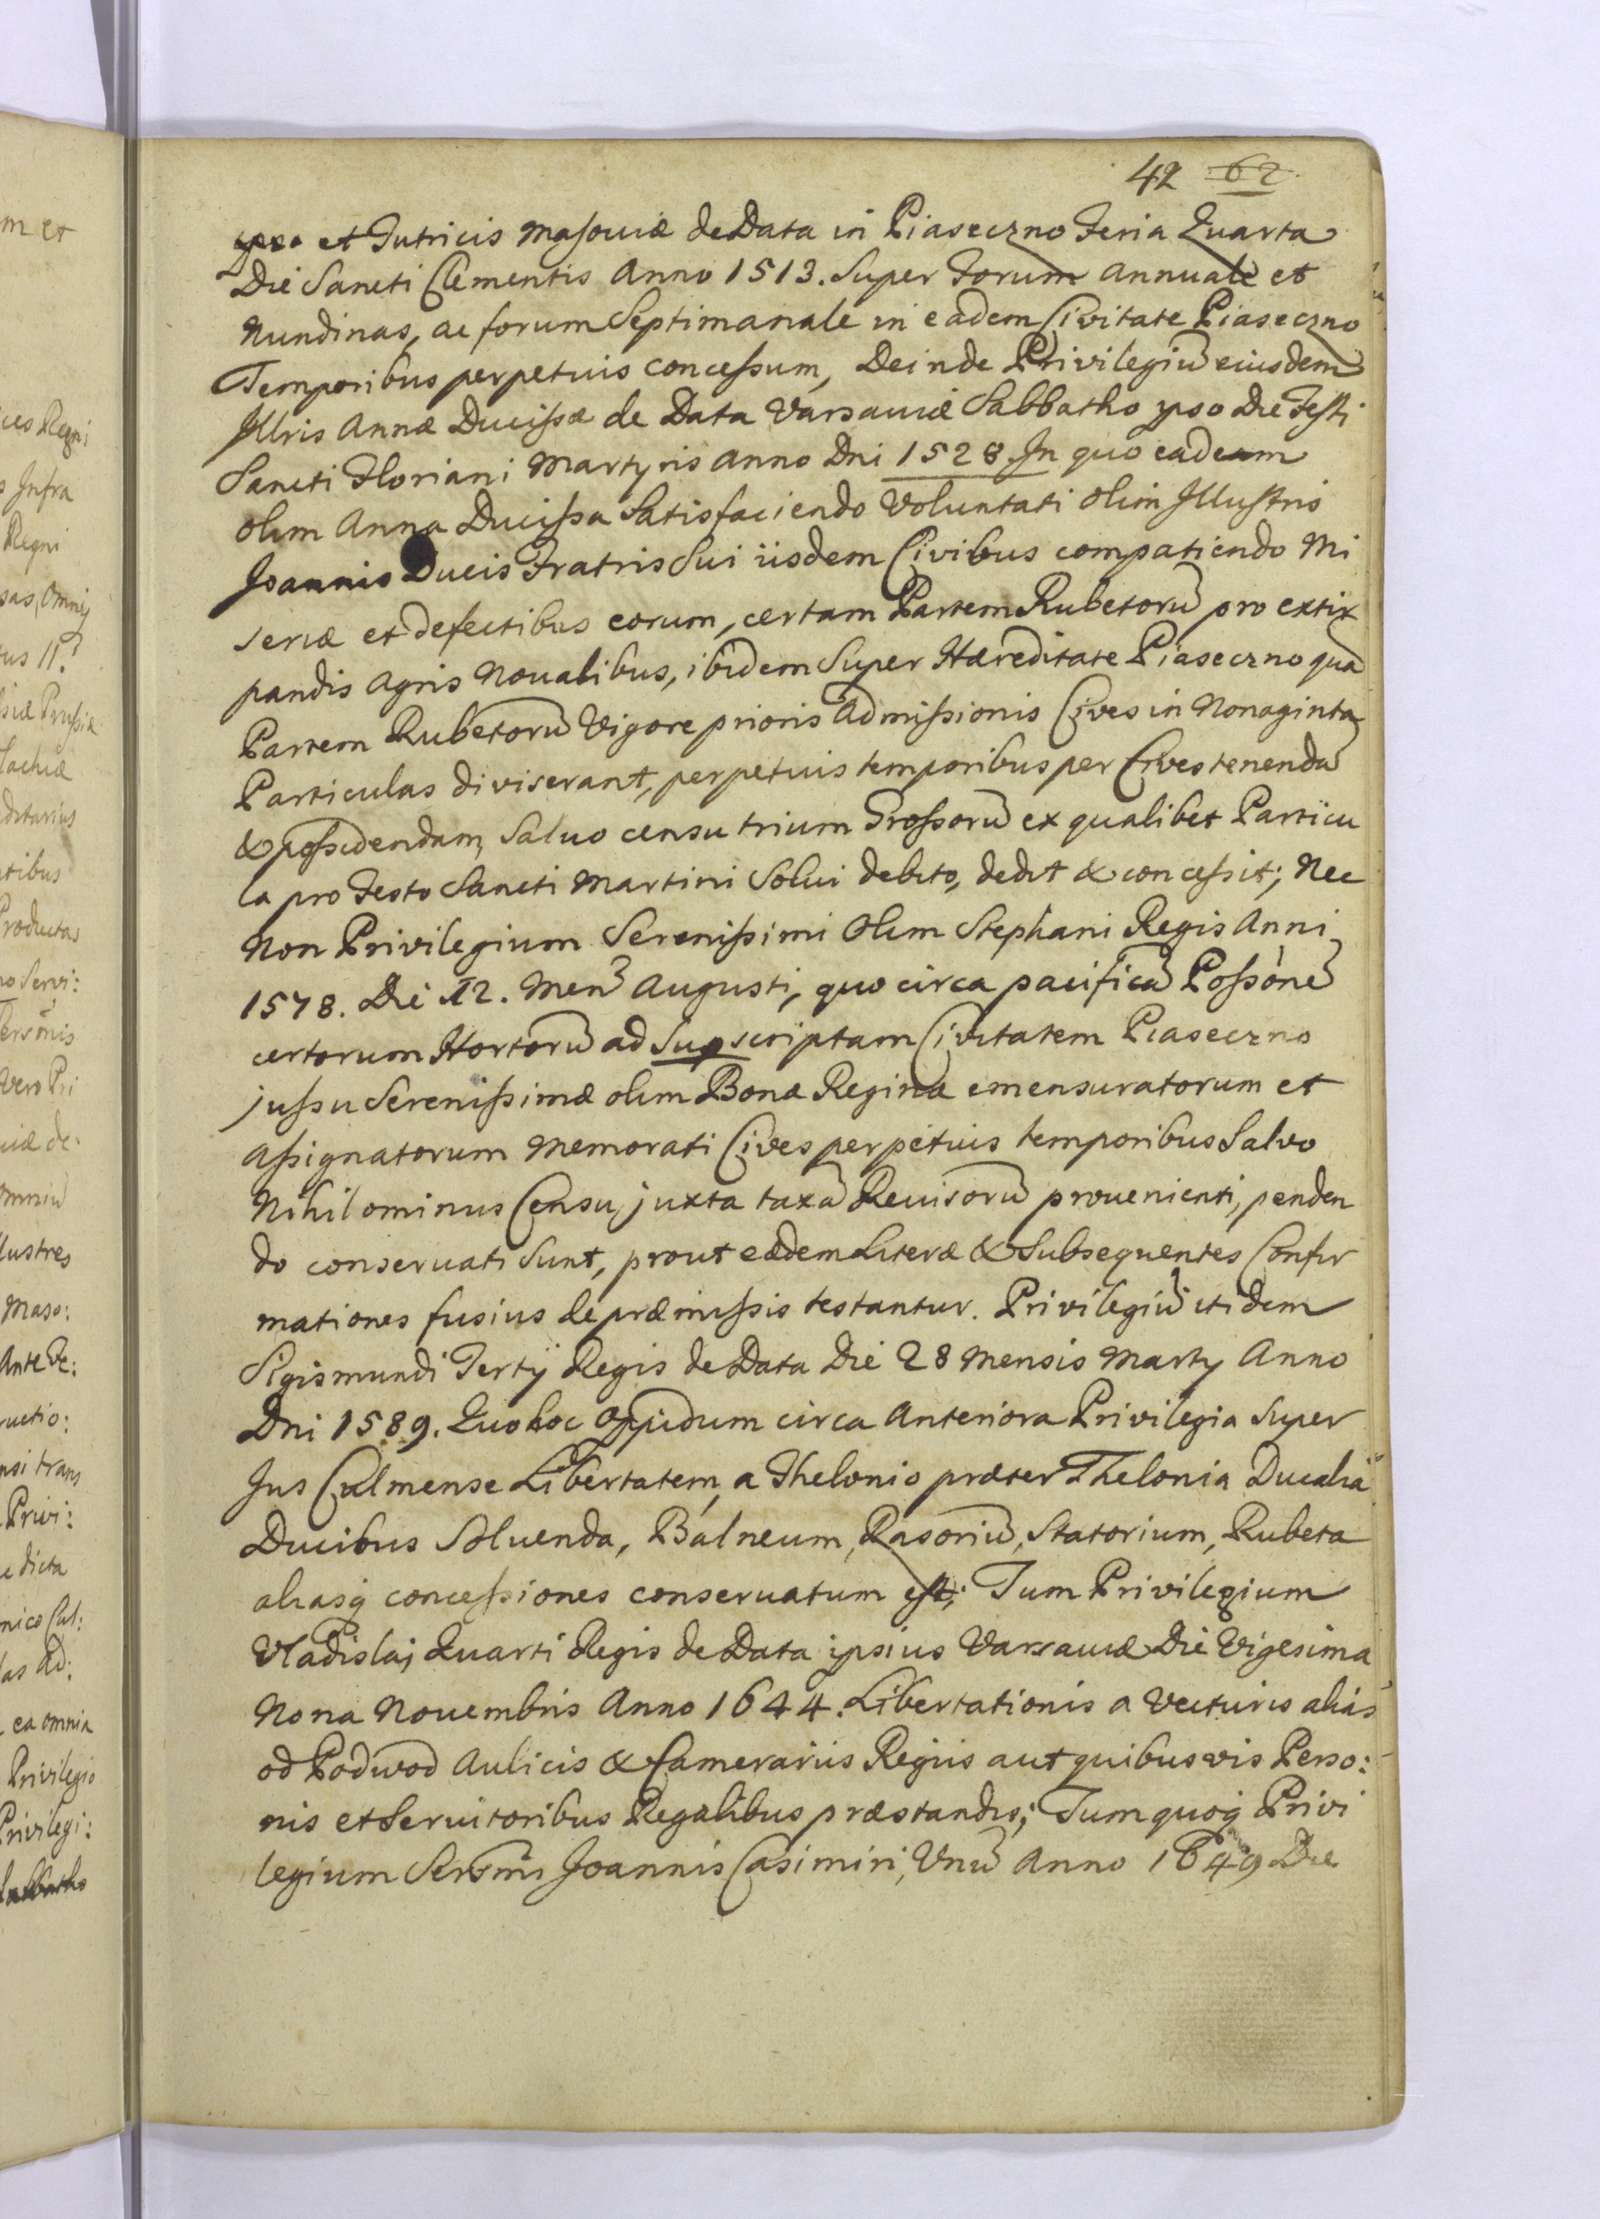 42 62
et Tutricis Masouiæ de Data in Piaseczno Feria Quarta
Die Sancti Clementis Anno 1513. Super Forum Annuale et
Nundinas, ac forum Septimanale in eadem Civitate Piaseczno
Temporibus perpetuis concessum, Deinde Privilegiū eiusdem
Illris Annæ Ducissæ de Data Varsauiæ Sabbatho ipso Die Festi
Sancti Floriani Martyris Anno Dni 1528. In quo eadem
olim Anna Ducissa Satisfaciendo Voluntati olim Illustris
Joannis Ducis Fratris Sui iisdem Civibus compatiendo Mi
seriæ et defectibus eorum, certam Partem Rubetorū pro extir
pandis Agris Noualibus, ibidem Super Hæreditate Piaseczno quā
Partem Rubetorū Vigore prioris Admissionis Cives in Nonaginta
Particulas diviserant, perpetuis temporibus per Cives tenendā
& possidendam, Saluo censu trium Grossorū ex qualibet Particu
la pro Festo Sancti Martini Solui debito, dedit & concessit; Nec
Non Privilegium Serenissimi Olim Stephani Regis Anni
1578. Die 12. Men̄ Augusti, quo circa pacificā Possonē
certorum Hortorū ad Supscriptam Civitatem Piaseczno
jussu Serenissimæ olim Bonæ Reginæ emensuratorum et
Assignatorum Memorati Cives perpetuis temporibus Salvo
Nihilominus Censu, juxta taxā Reuisorū prouenienti, penden
do conseruati Sunt, prout eædem Literæ & Subsequentes Confir
mationes fusius de præmissis testantur. Privilegiū itidem
Sigismundi Tertij Regis de Data Die 28 Mensis Marty Anno
Dni 1589. Quo hoc Oppidum circa Anteriora Privilegia Super
Jus Culmense Libertatem, a Thelonio præter Thelonia Ducalia
Ducibus Soluenda, Balneum, Rasoriū, Statorium, Rubeta
aliasq̨ concessiones conseruatum est; Tum Privilegium
Vladislaj Quarti Regis de Data ipsius Varsauiæ Die Vigesima
Nona Nouembris Anno 1644. Libertationis a Vecturis alias
od Podwod Aulicis & Camerariis Regiis aut quibusvis Perso:
nis et Seruitoribus Regalibus præstandis; Tum quoq̨ Privi
legium Sersmi Joannis Casimiri, Unū Anno 1649 Die